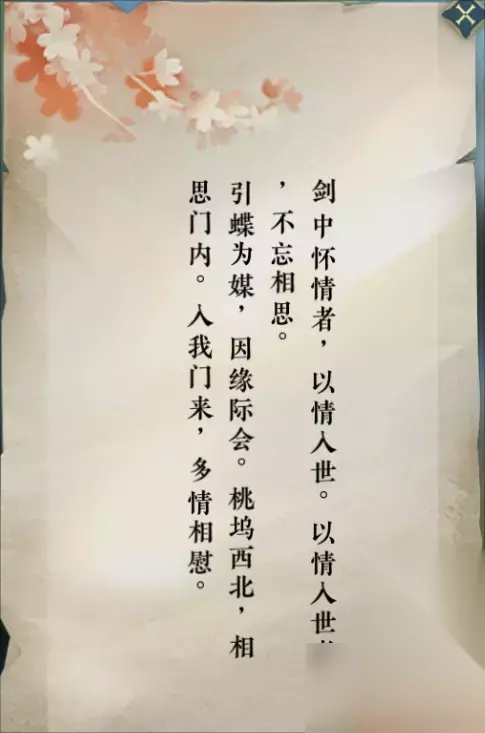 剑中怀情者，以情入世。以情入世
，不忘相思。
引蝶为媒，因缘际会。桃坞西北，相
思门内。入我门来，多情相慰。